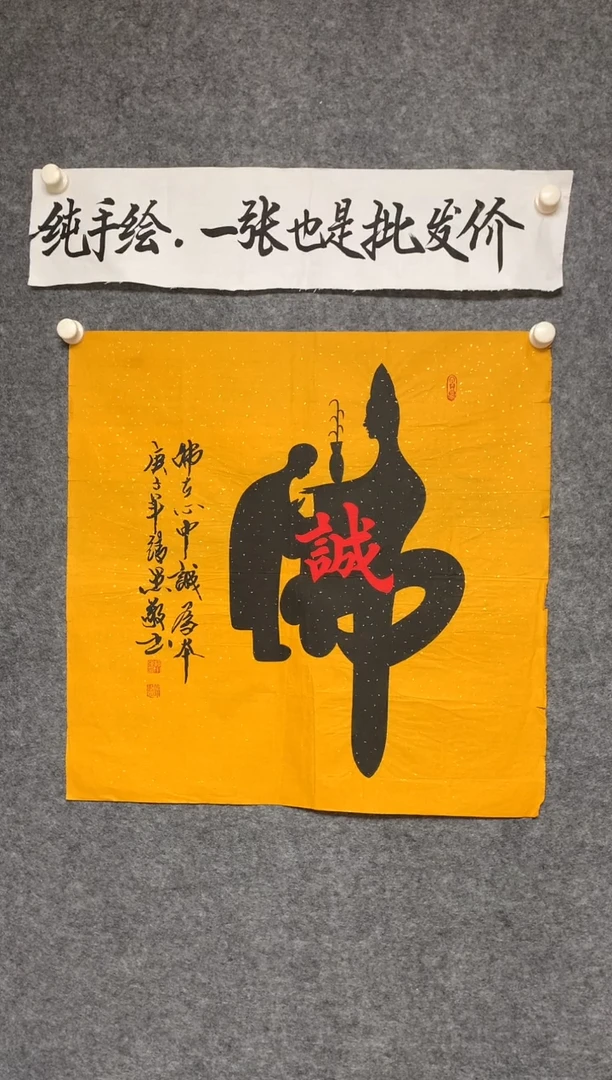 纯手绘.一张也是批发价
佛
誠
佛在心中誠為本
庚子年 思敬书